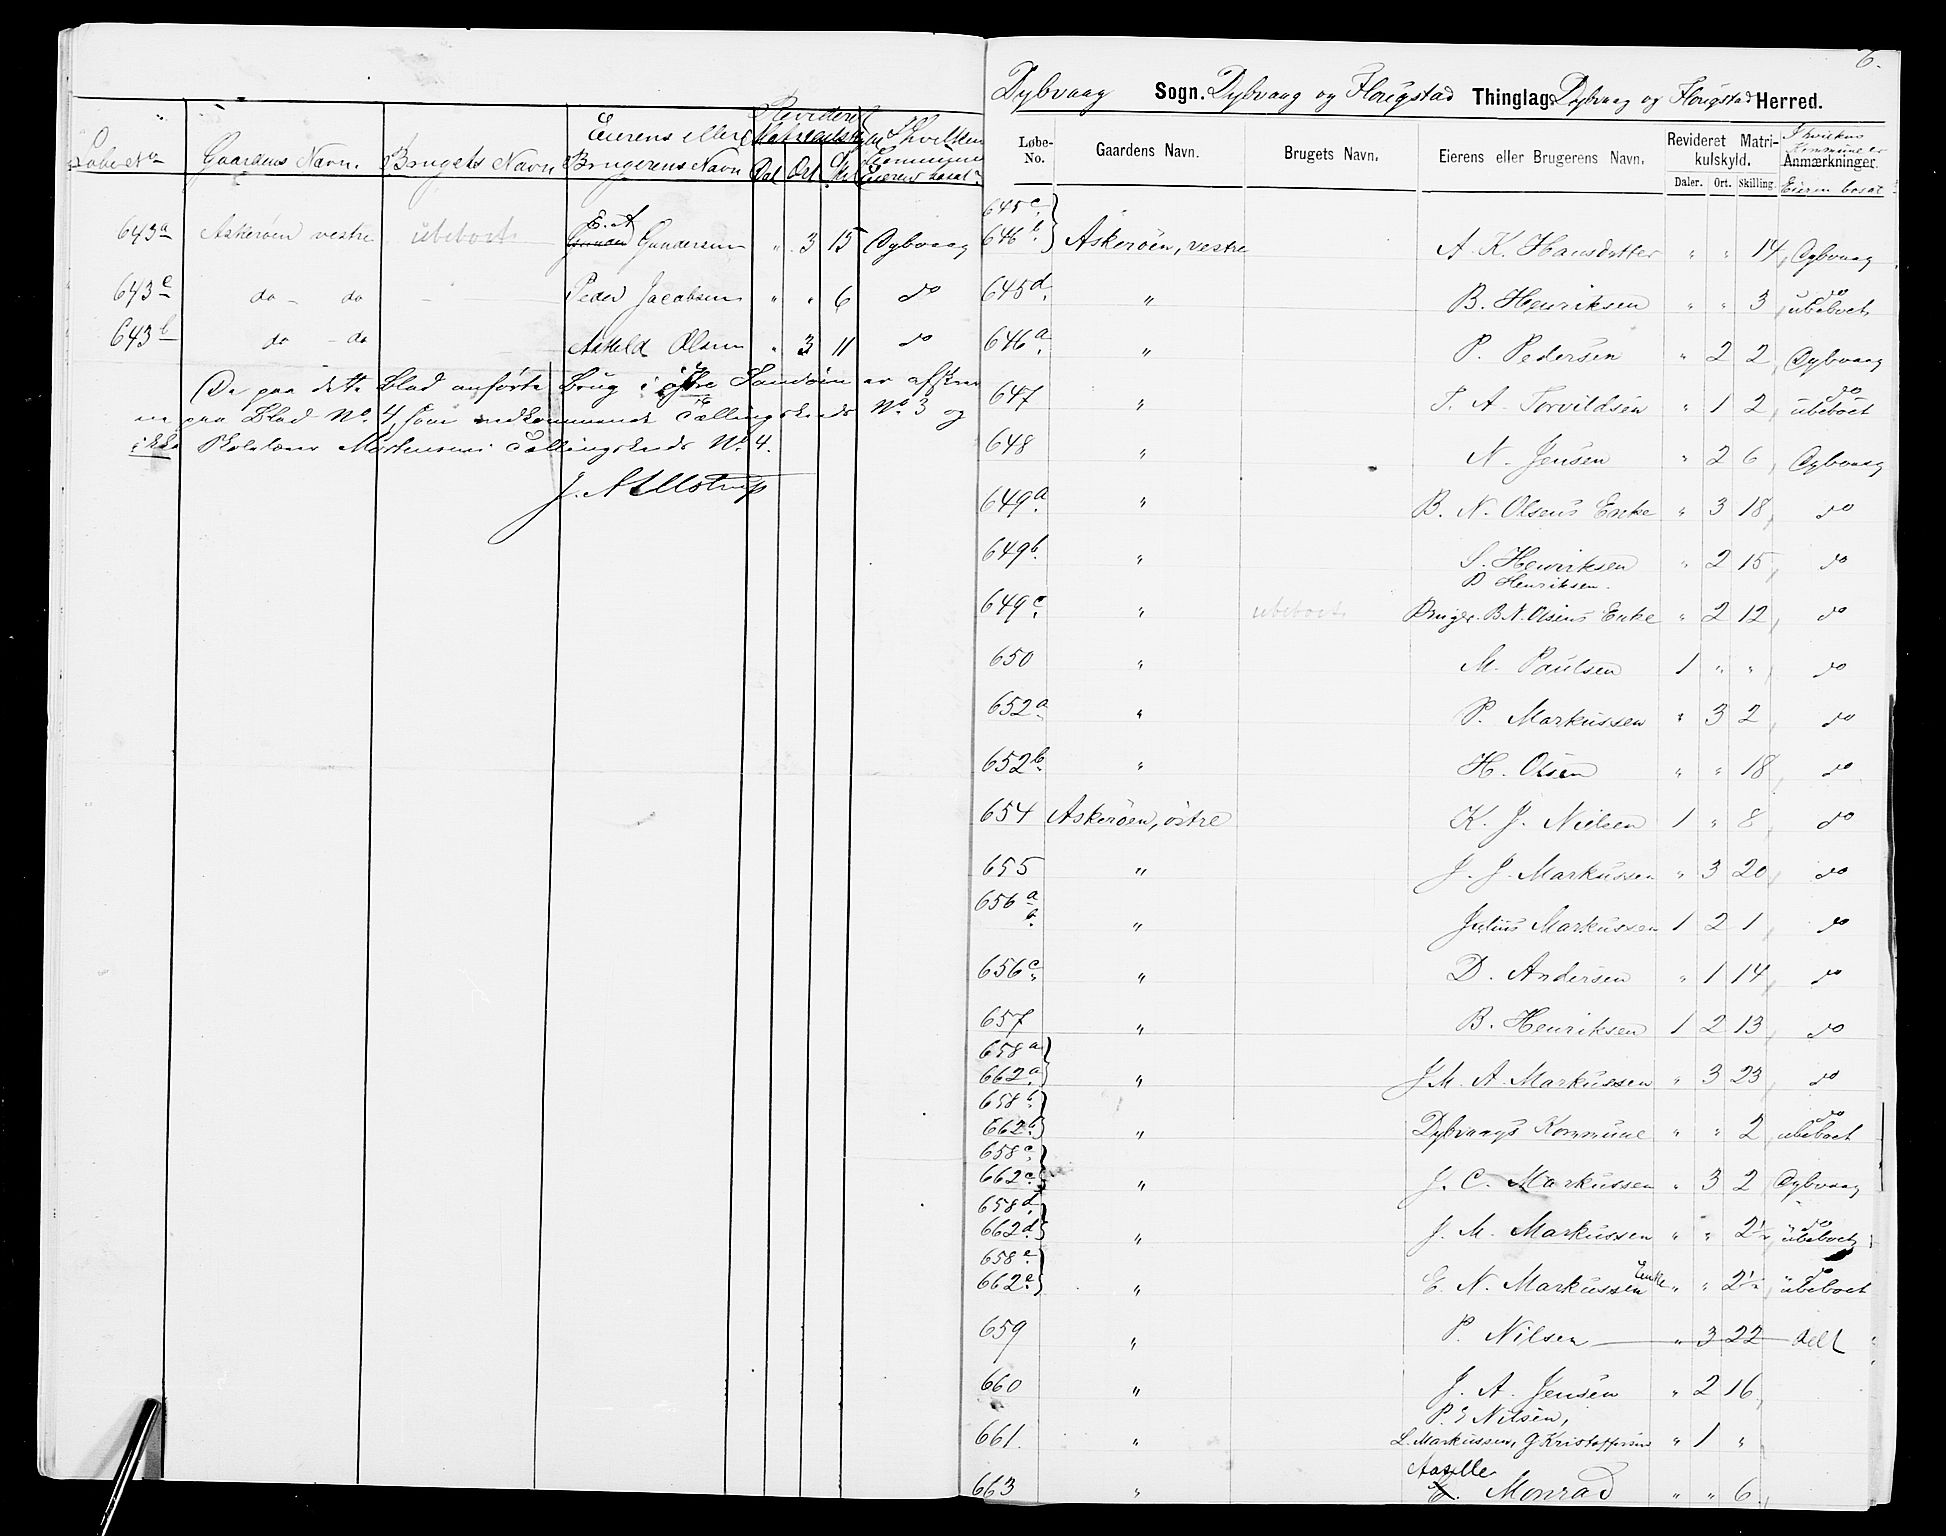 Løbe No Gaardens Navn. Brugets Navn Eierens eller Brugerens Navn Revideret Matrikulsk. Dal Ort Sk. I hvilken Kommune Eieren bosat.
643a Askerøen vestre ubeboet E. A. Gundersen " 3 15 Dybvaag
643c do - do Peder Jacobsen " " 6 do
643b do - do Askeld Olsen " 3 11 do
De paa dette Blad anførte Brug i Sandøen er afskrev
ne paa Blad No. 4, som vedkommende Tællingskreds No 3 og
ikke Mortensens Tællingskreds No. 4.
6.
Dybvaag Sogn. Dybvaag og Flougstad Thinglag Dybvaag og Flougstad Herred.
Løbe-No. Gaardens Navn. Brugets Navn. Eierens eller Brugerens Navn. Revideret Matrikulskyld. Daler. Ort. Skilling. I hvilken Kommune er Anmærkninger. Eieren bosat
645c.
646b. Askerøen, vestre A. K. Hansdatter " " 14, Dybvaag
645d. " B. Henriksen " " 3, do ubeboet
646a. " P. Pedersen " 2 2, Dybvaag
647 " T. A. Torvildsen " 1 2, do ubeboet
648 " N. Jensen " 2 6, Dybvaag
649a. " B. N. Olsens Enke " 3 18, do
649b. " S. Henriksen " 2 15, do
P Henriksen.
649c. " ubeboet. Bruger. B. N. Olsens Enke " 2 12, do
650 " M. Paulsen 1 " ", do
652a. " P. Markussen " 3 2, do
652b. " H. Olsen " " 18, do
654 Askerøen, østre K. J. Nielsen 1 " 8, do
655 " J. J. Markussen " 3 20, do
656a b. " Julius Markussen 1 2 1, do
656c. " D. Andersen " 1 14, do
657 " B. Henriksen 1 2 13, do
658a
662a. " J. M. A. Markussen " 3 23, do
658b.
662b. " Dybvaags Kommune " " 2 do ubeboet
658c.
662c. " J. C. Markussen " 3 2 Dybvaag
658d.
662d. " J. M. Markussen " " 2½, do ubeboet
658e.
662e. " E. N. Markussen Enke " " 2½, do ubeboet
659 " P. Nilsen " 3 22 delt
660 " J. A. Jensen " 2 16,
P. E Nilsen,
661. " L. Markussen, G Kristoffersens " 1 "
663 " Monrad " " 6.,